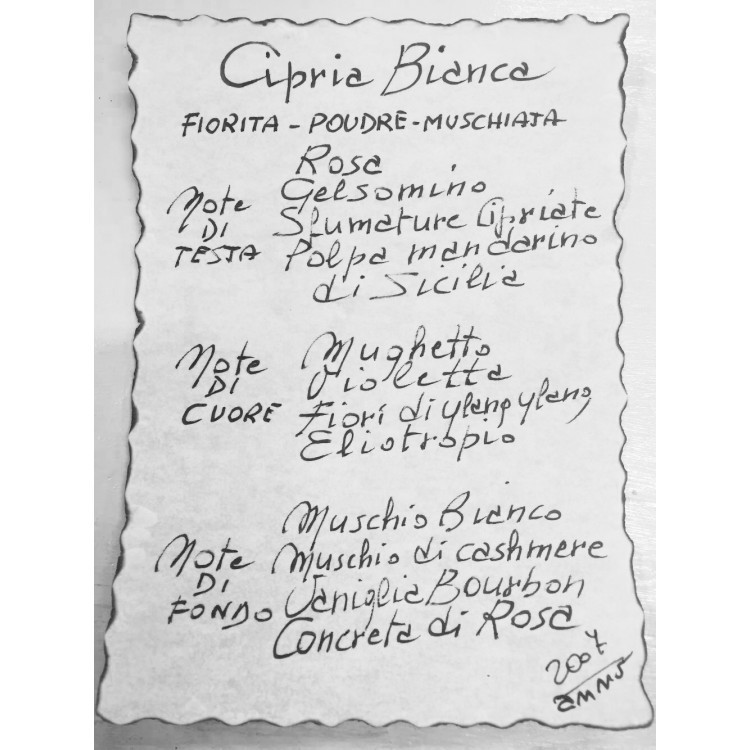 Cipria Bianca
FIORITA - POUDRE - MUSCHIATA
Note
DI
TESTA
Rosa
Gelsomino
Sfumature Cipriate
Polpa mandarino
di Sicilia
Note
DI
CUORE
Mughetto
Violetta
Fiori di ylang ylang
Eliotropio
Note
DI
FONDO
Muschio Bianco
Muschio di cashmere
Vaniglia Bourbon
Concreta di Rosa
2007